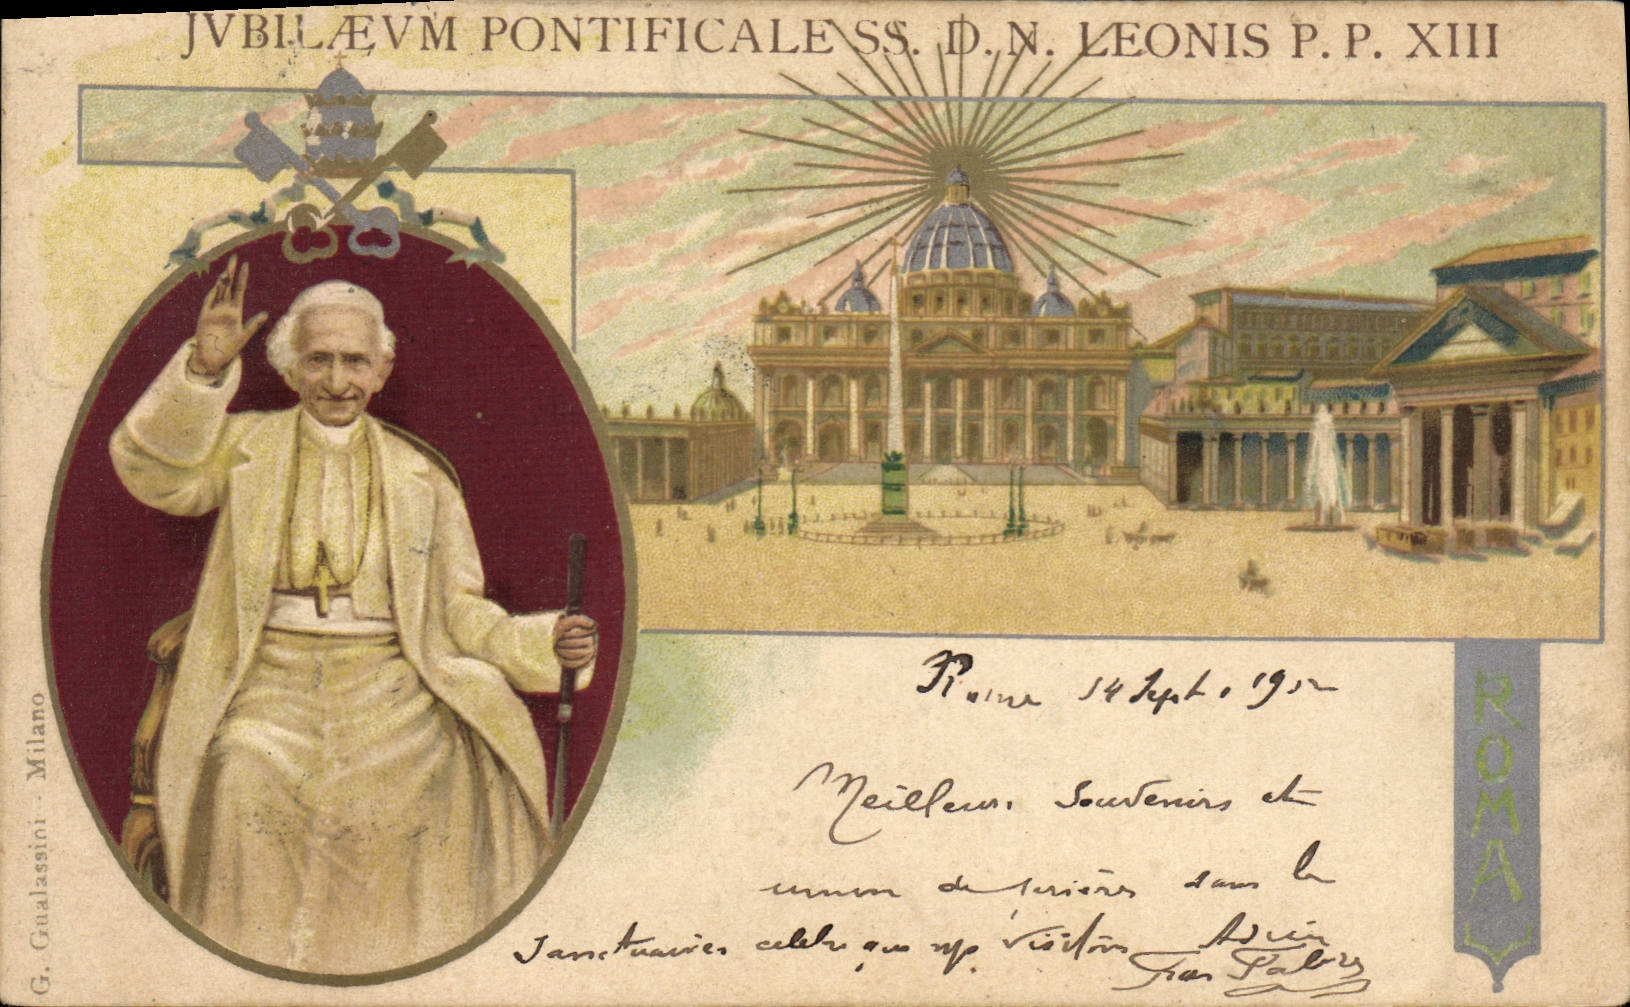 JVBILÆVM PONTIFICALE SS. D. N. LEONIS P. P. XIII
Rome 14 Sept. 1902
Meilleurs Souvenirs et
union de prières dans les
Sanctuaires célèbres que nous visitons
ROMA
G. Gualassini - Milano